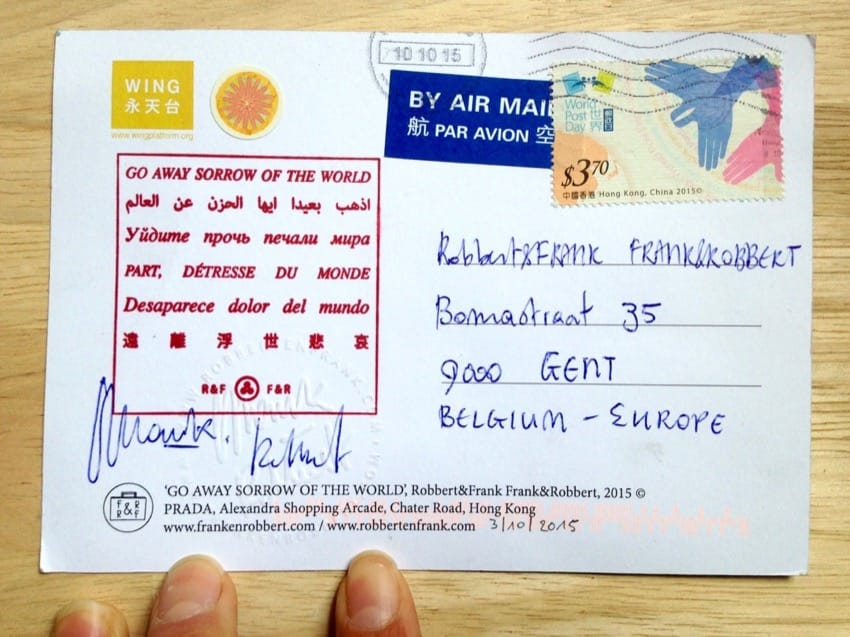 10 10 15
WING
永天台
www.wingplatform.org
BY AIR MAIL
航 PAR AVION 空
World
Post 世
Day 界
郵政日
$3.70
中國香港 Hong Kong, China 2015©
GO AWAY SORROW OF THE WORLD
اذهب بعيدا ايها الحزن عن العالم
Уйдите прочь печали мира
PART, DÉTRESSE DU MONDE
Desaparece dolor del mundo
遠離浮世悲哀
R&F F&R
Robbert&FRANK FRANK&ROBBERT
Bomastraat 35
9000 GENT
BELGIUM - EUROPE
F&R
R&F
'GO AWAY SORROW OF THE WORLD', Robbert&Frank Frank&Robbert, 2015 ©
PRADA, Alexandra Shopping Arcade, Chater Road, Hong Kong
www.frankenrobbert.com / www.robbertenfrank.com 3/10/2015